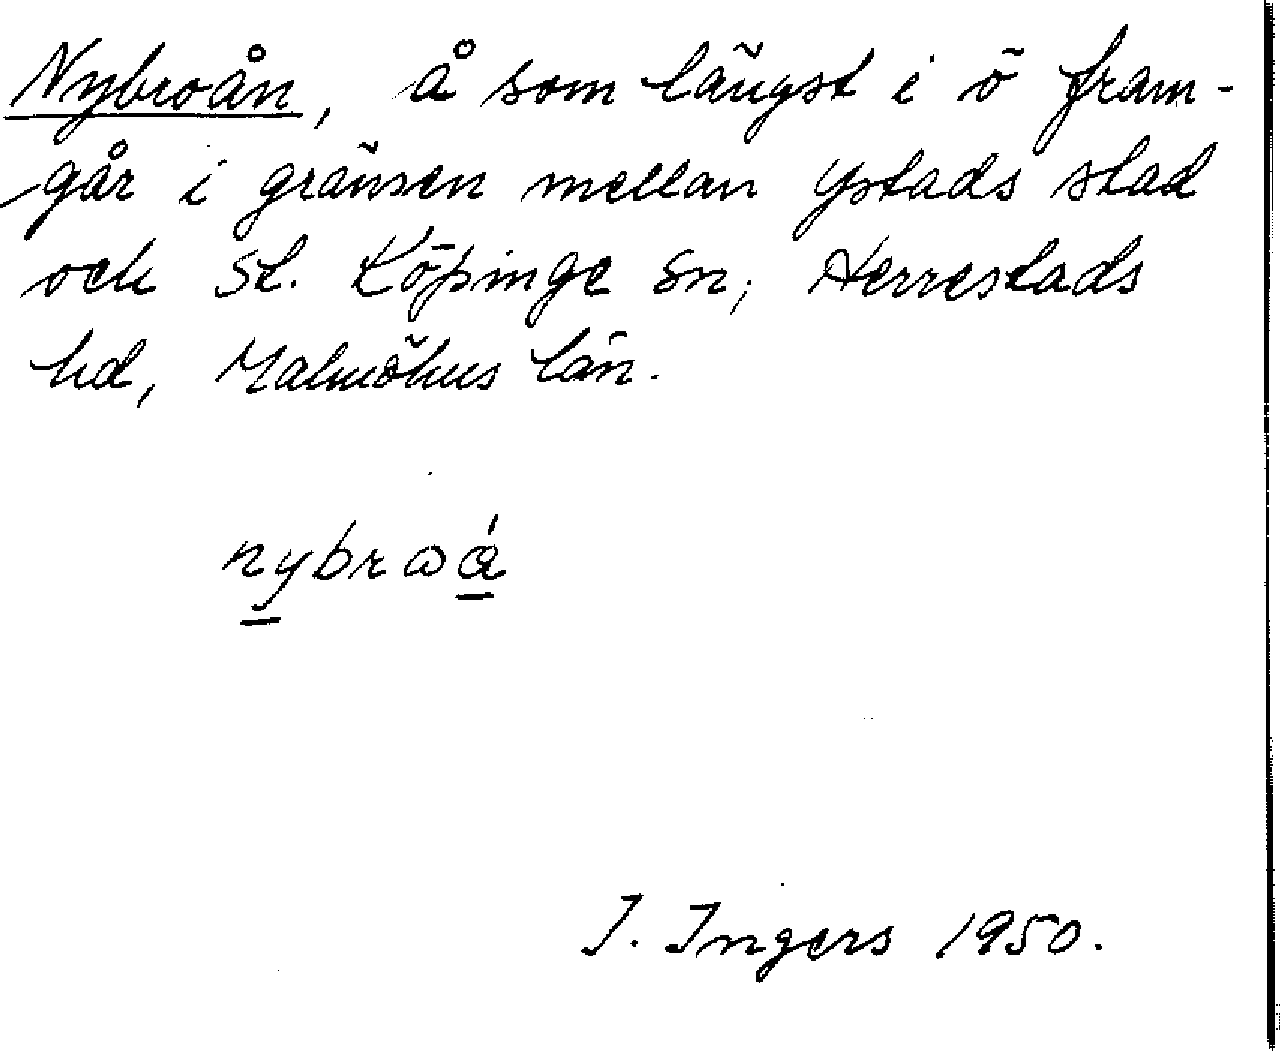 Nybroån, å som längst i ö fram-
går i gränsen mellan Ystads stad
och St. Köpinge sn, Herrestads
hd, Malmöhus län.
nybroå
I. Ingers 1950.